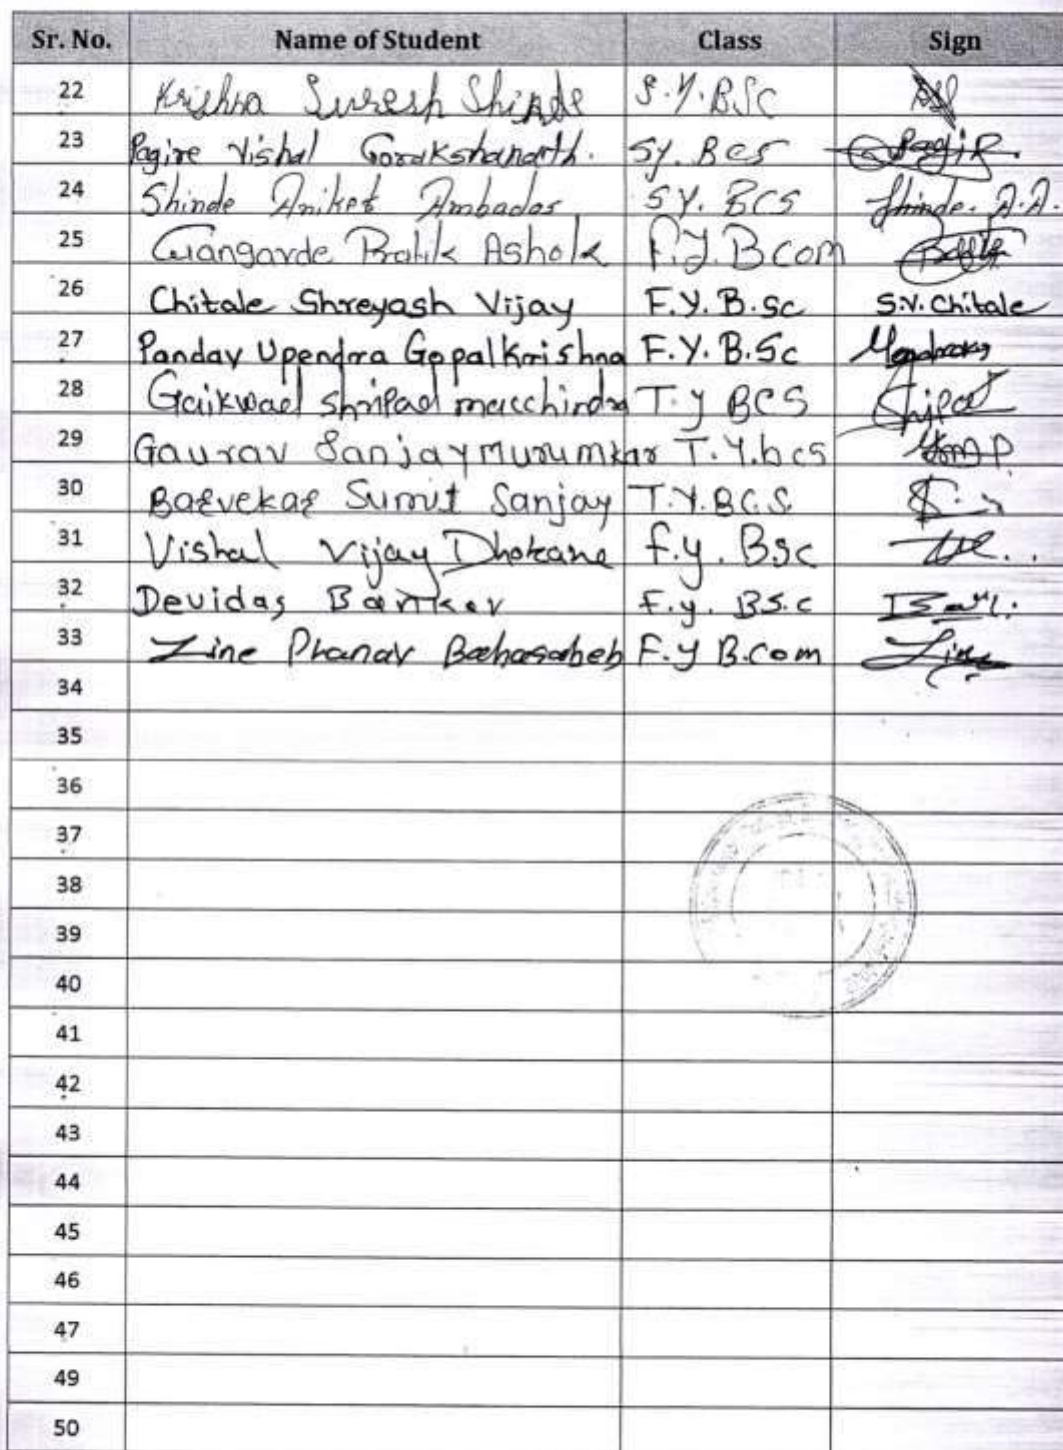 Sr. No. Name of Student Class Sign
22 Krishna Suresh Shinde S.Y.BSc
23 Pagire Vishal Gorakshanath. SY. BCS Pagire
24 Shinde Aniket Ambadas SY. BCS Shinde. A.A.
25 Gangarde Pratik Ashok F.Y.BCom
26 Chitale Shreyash Vijay F.Y.B.Sc S.V. Chitale
27 Panday Upendra Gopalkrishna F.Y.B.Sc
28 Gaikwad Shripad macchindra T.y BCS Shripad
29 Gaurav Sanjay Murumkar T.Y.bcs
30 Barvekar Sumit Sanjay T.Y.BC.S.
31 Vishal Vijay Dhokane f.y. Bsc
32 Devidas Bankar F.y. BS.c
33 Zine Pranav Babasaheb F.Y B.com Zine
34
35
36
37
38
39
40
41
42
43
44
45
46
47
49
50